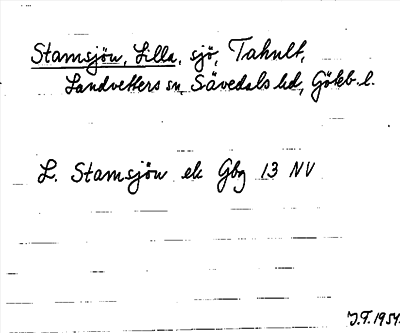 Stamsjön, Lilla, sjö, Tahult,
Landvetters sn, Sävedals hd, Götbb. l.
L. Stamsjön ek Gbg 13 NV
J.F. 1951.